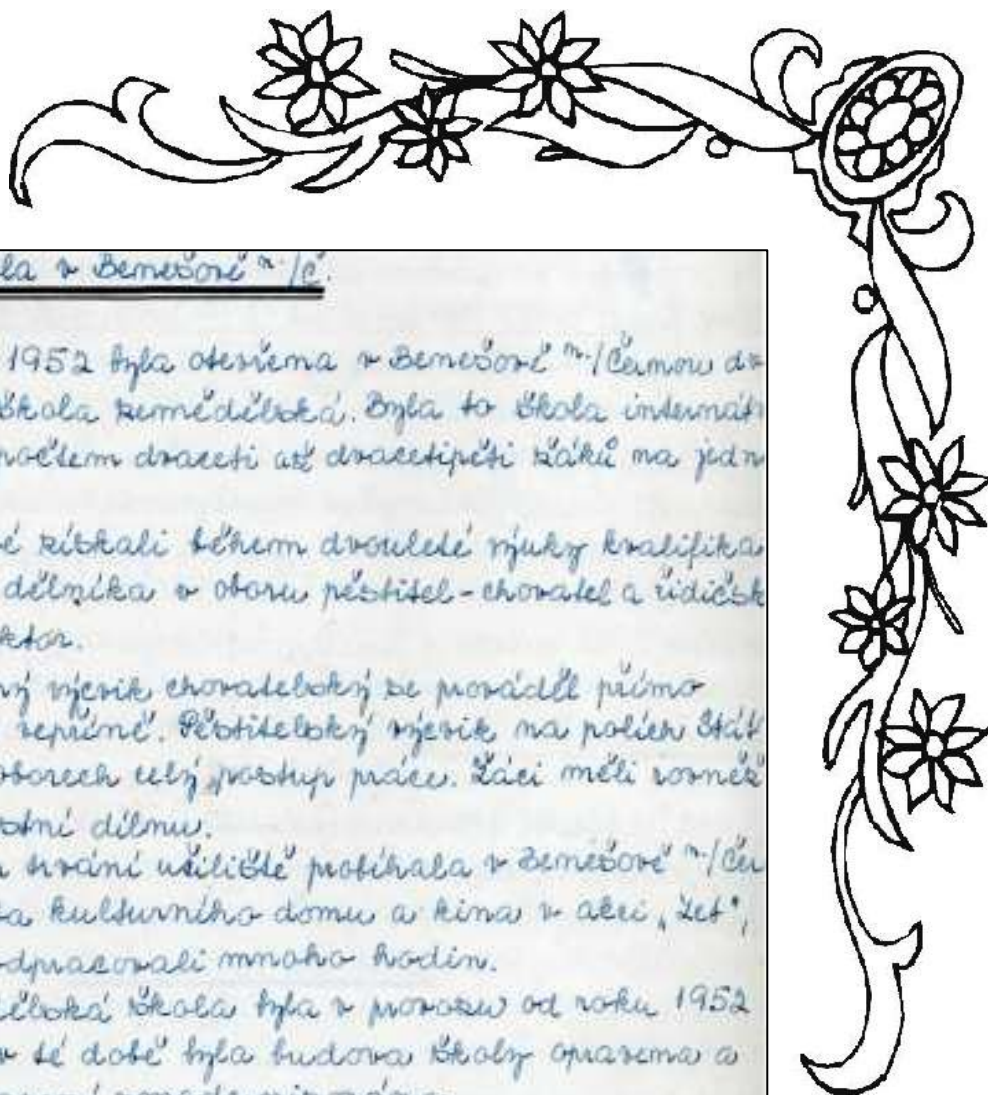 la v Benešově n./Č.
1952 byla otevřena v Benešově n./Černou dv
škola zemědělská. Byla to škola internát
počtem dvaceti až dvacetipěti žáků na jedn
é získali během dvouleté výuky kvalifika
dělníka v oboru pěstitel-chovatel a řidičsk
ktor.
vý výcvik chovatelský se prováděl přímo
řepříně. Pěstitelský výcvik na polích Stát
oborech celý postup práce. Žáci měli rovněž
stní dílnu.
trvání učiliště probíhala v Benešově n./Čer
a kulturního domu a kina v akci „Zet“,
odpracovali mnoho hodin.
ělská škola byla v provozu od roku 1952
v té době byla budova školy opravena a